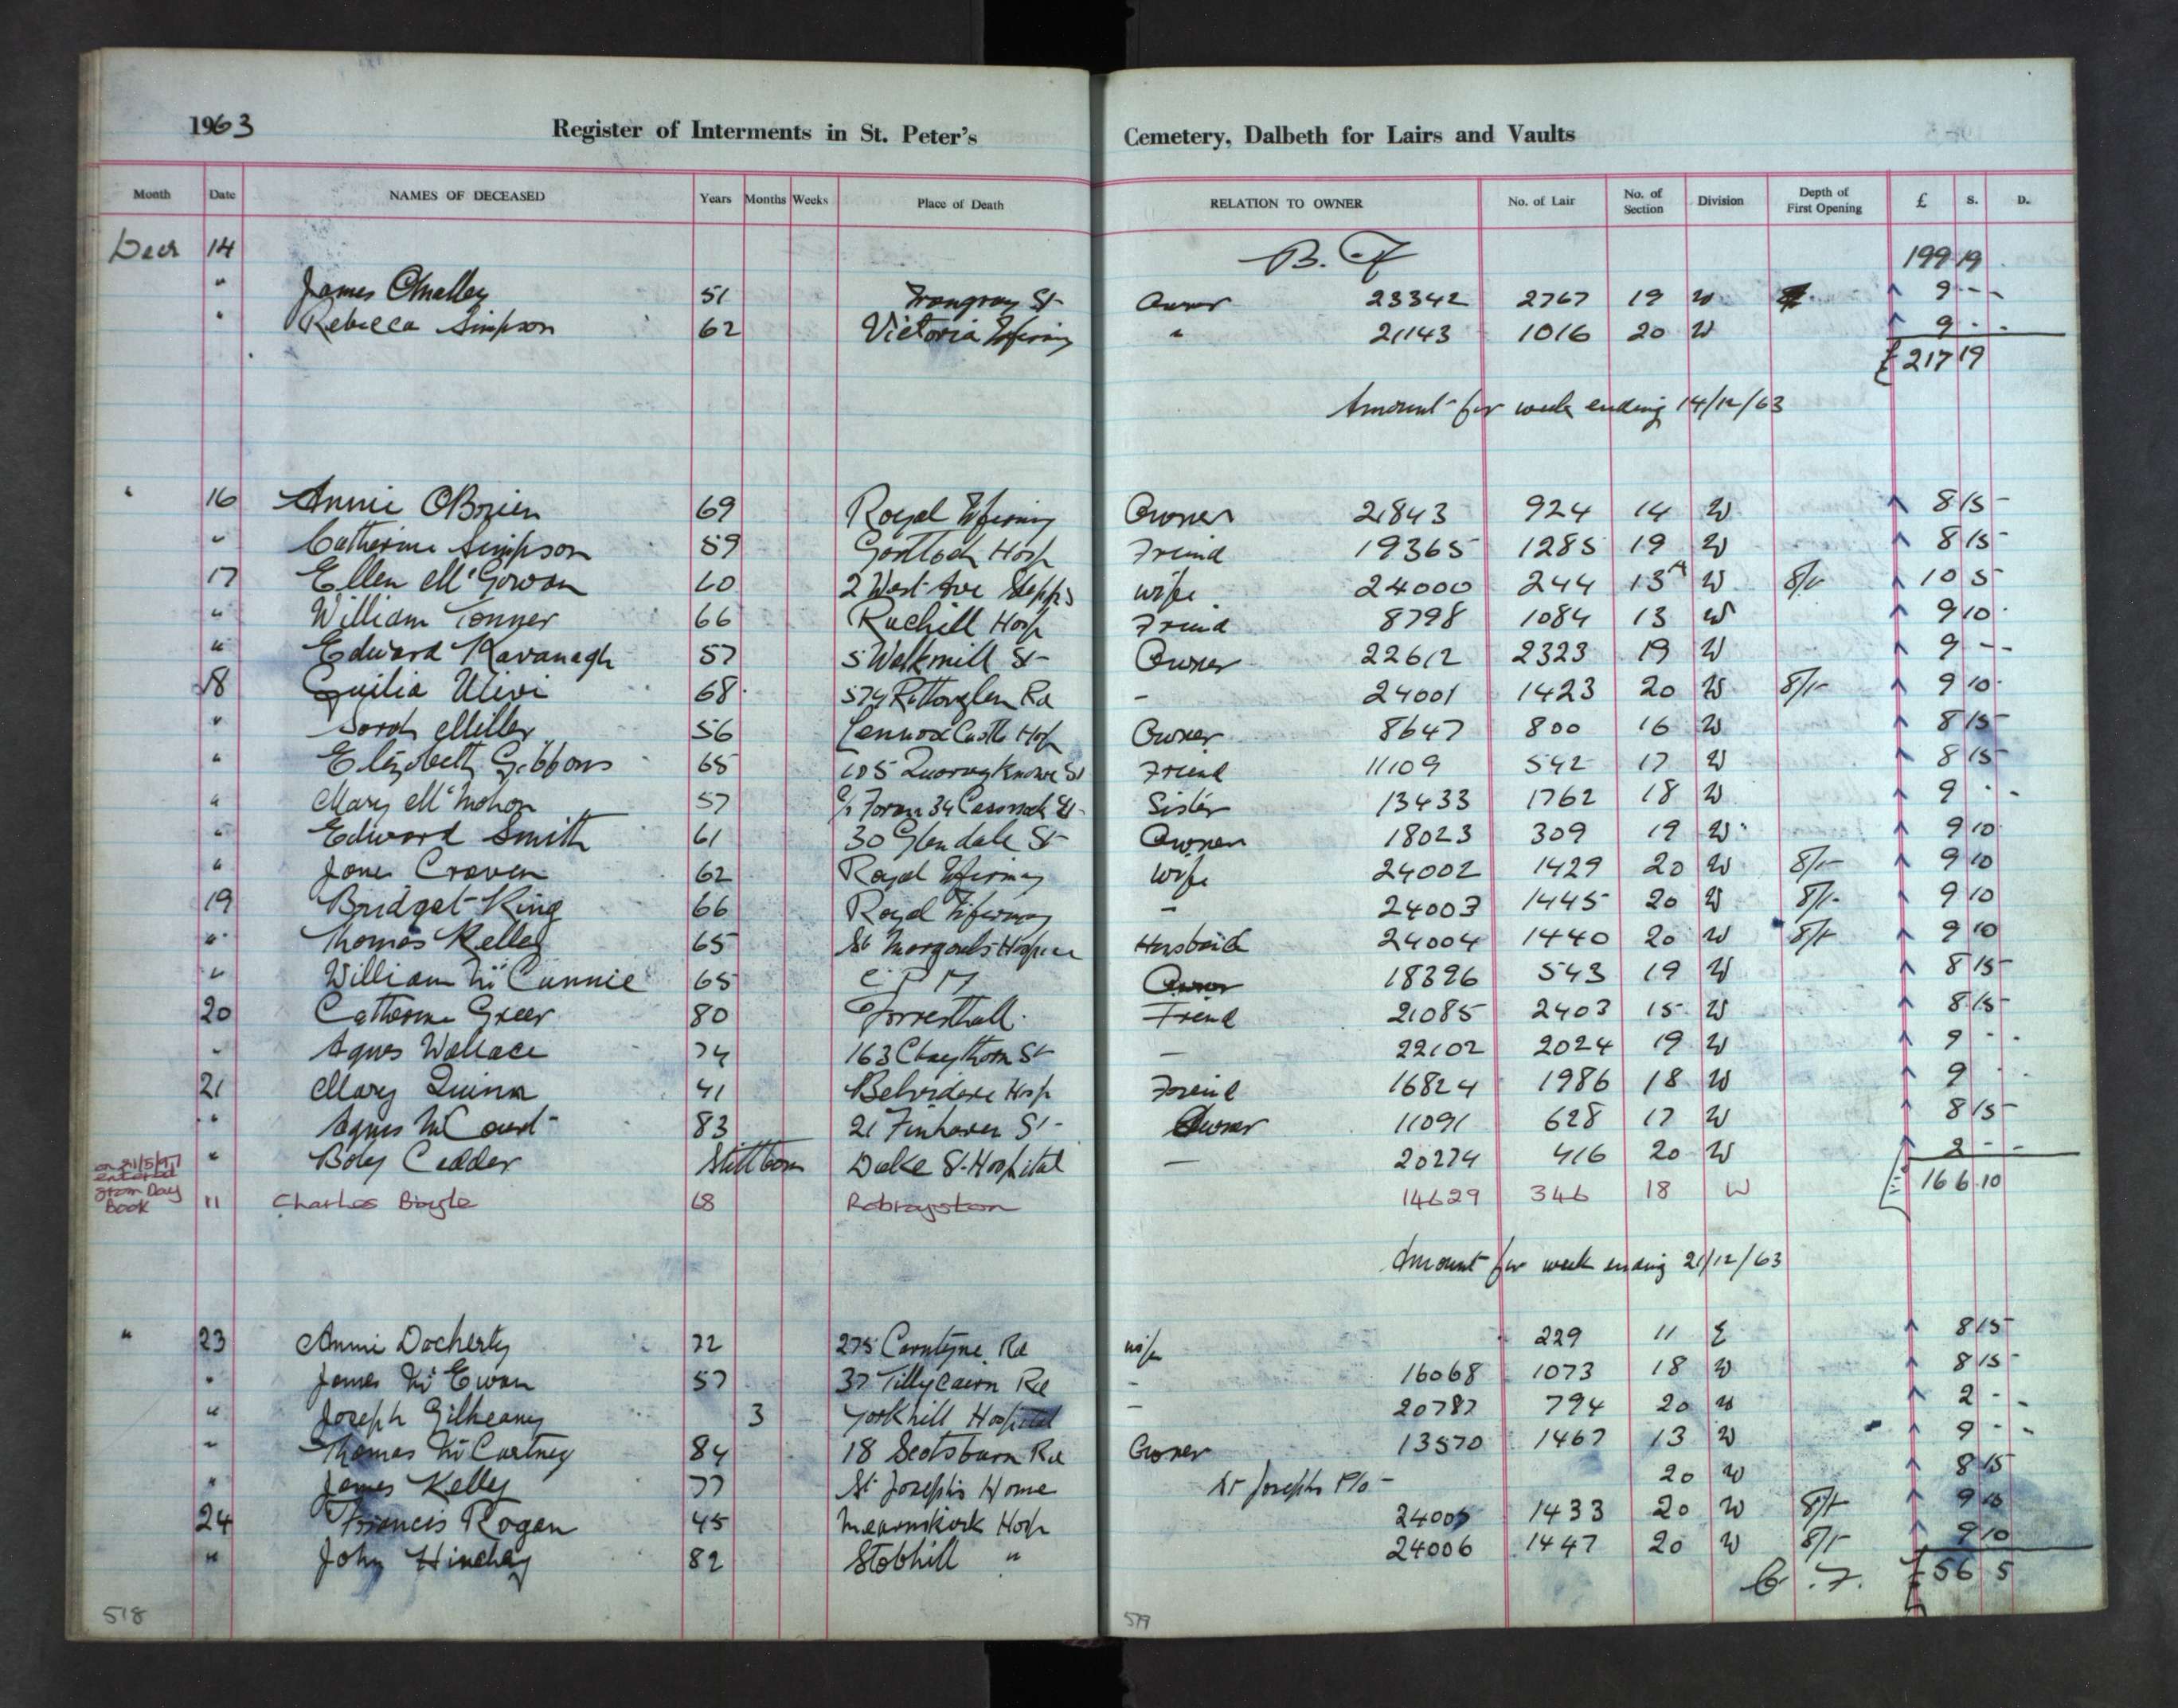 1963 Register of Interments in St. Peter's Cemetery, Dalbeth for Lairs and Vaults
Month Date NAMES OF DECEASED Years Months Weeks Place of Death RELATION TO OWNER No. of Lair No. of Section Division Depth of First Opening £ S. D.
Decr 14 B. F 199 19
" James OMalley 51 St Owner 23342 2767 19 W 9 - -
" Rebecca Simpson 62 Victoria Infirmy " 21143 1016 20 W 9 - -
£217 19
Amount for week ending 14/12/63
" 16 Annie OBrien 69 Royal Infirmy Owner 21843 924 14 W 8 15 -
" Catherine Simpson 59 Gartloch Hosp Freind 19365 1285 19 W 8 15 -
17 Ellen McGowan 60 2 West Ave Stepps wife 24000 244 13A W 8/- 10 5
" William Tonner 66 Ruchill Hosp Freind 8798 1084 13 W 9 10
" Edward Kavanagh 57 5 Walkmill St Owner 22612 2323 19 W 9 - -
18 Guilia Ulivi 68 574 Rutherglen Rd - 24001 1423 20 W 8/- 9 10
" Sarah Miller 56 Lennox Castle Hosp Owner 8647 800 16 W 8 15
" Elizabeth Gibbons 65 105 Quarryknowe St Friend 11109 542 17 W 8 15
" Mary McMahon 57 c/o Foran 34 St Sister 13433 1762 18 W 9 - -
" Edward Smith 61 30 Glendale St Owner 18023 309 19 W 9 10
" Jane Craven 62 Royal Infirmy wife 24002 1429 20 W 8/- 9 10
19 Bridget King 66 Royal Infirmary - 24003 1445 20 W 8/- 9 10
" Thomas Kelley 65 St Margarets Hospice Husband 24004 1440 20 W 8/- 9 10
" William McCunnie 65 Owner 18396 543 19 W 8 15
20 Catherine Greer 80 Forresthall Freind 21085 2403 15 W 8 15
" Agnes Wallace 74 163 Claythorn St - 22102 2024 19 W 9 - -
21 Mary Quinn 41 Belvidere Hosp Freind 16824 1986 18 W 9 - -
" Agnes McCourt 83 21 Finhaven St Owner 11091 628 17 W 8 15 -
" Baby Cedder Stillborn Duke St. Hospital - 20274 416 20 W 2 - -
on 21/5/97 entered from Day Book 11 Charles Boyle 68 Robroyston 14629 346 18 W 166 10
Amount for week ending 21/12/63
" 23 Annie Docherty 72 275 Carntyne Rd wife 229 11 E 8 15
" James McEwan 57 37 Tillycairn Rd - 16068 1073 18 W 8 15
" Joseph Gilheany 3 Yorkhill Hospital - 20787 794 20 W 2 - -
" Thomas McCartney 84 18 Scotsburn Rd Owner 13570 1467 13 W 9 - -
" James Kelly 77 St Josephs Home St Josephs 20 W 8 15
24 Francis Rogan 45 Mearnskirk Hosp 24005 1433 20 W 8/- 9 10
" John Hinchey 82 Stobhill " 24006 1447 20 W 8/- 9 10
C. F. £56 5
518 519